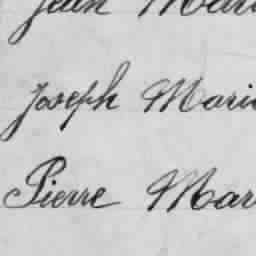 Jean Mari
Joseph Mari
Pierre Mar